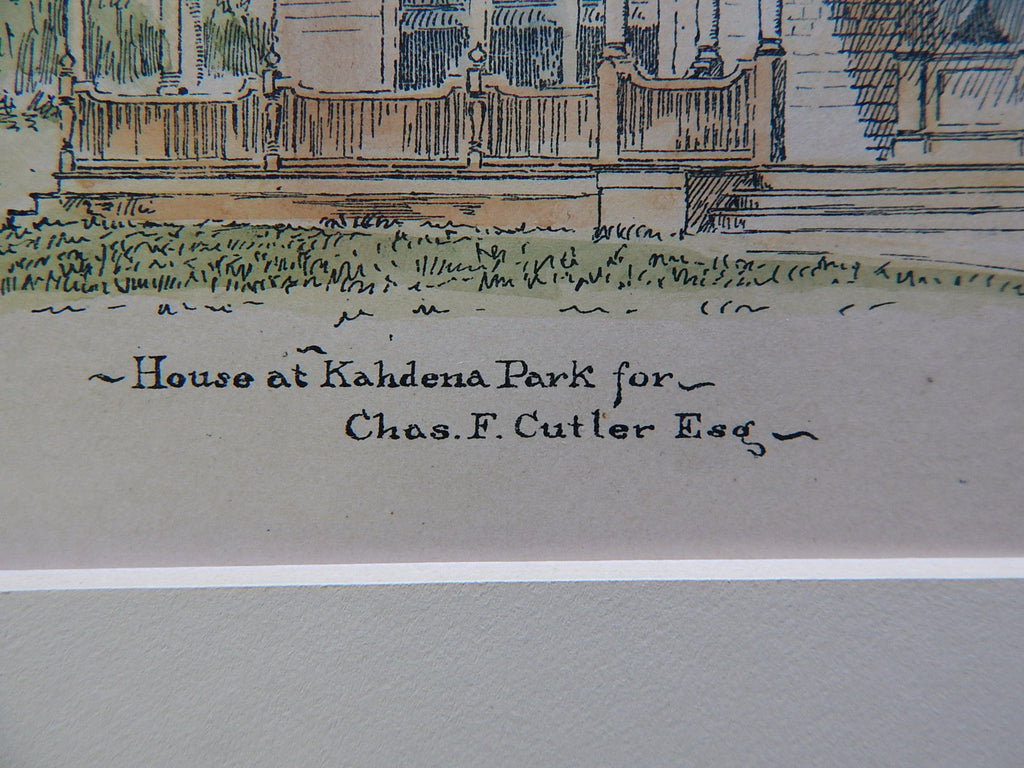 ~ House at Kahdena Park for ~
Chas. F. Cutler Esq ~